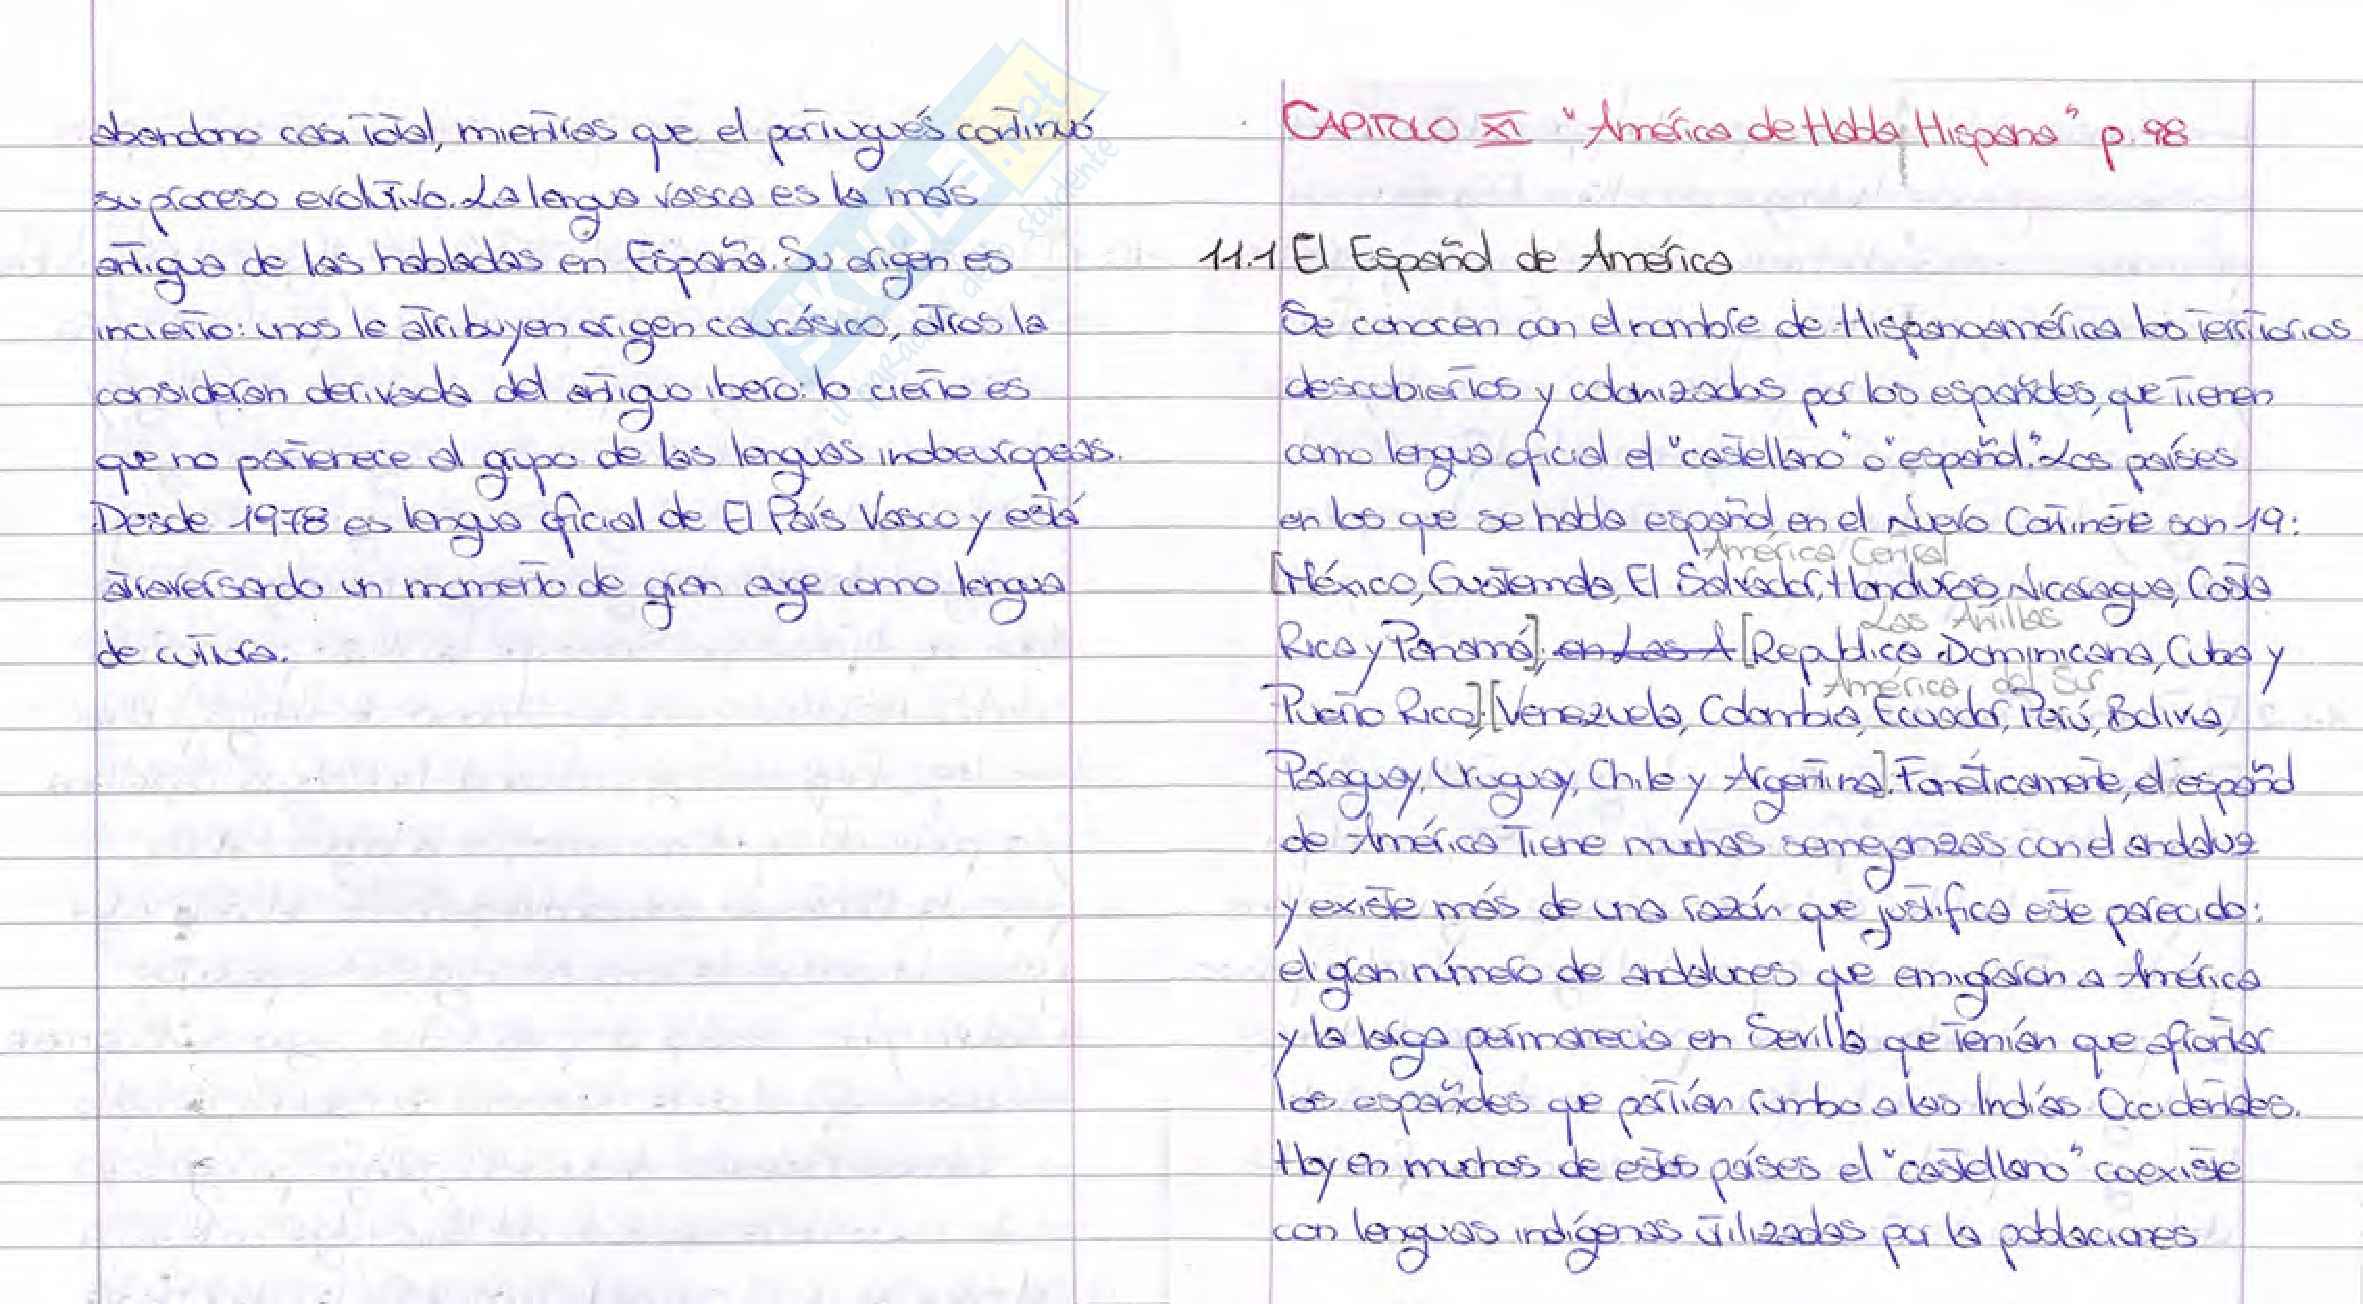 abandono casi total, mientras que el portugués continuó
su proceso evolutivo. La lengua vasca es la más
antigua de las habladas en España. Su origen es
incierto: unos le atribuyen origen caucásico, otros la
consideran derivada del antiguo ibero: lo cierto es
que no pertenece al grupo de las lenguas indoeuropeas.
Desde 1978 es lengua oficial de El País Vasco y está
atraversando un momento de gran auge como lengua
de cultura.
CAPITOLO XI "América de Habla Hispana" p. 98
11.1 El Español de América
Se conocen con el nombre de Hispanoamérica los territorios
descubiertos y colonizados por los españoles, que tienen
como lengua oficial el "castellano" o "español". Los países
en los que se habla español en el Nuevo Continente son 19:
América Central
[México, Guatemala, El Salvador, Honduras, Nicaragua, Costa
Las Antillas
Rica y Panamá]; en Las A [Republica Dominicana, Cuba y
América del Sur
Puerto Rico]; [Venezuela, Colombia, Ecuador, Perú, Bolivia,
Paraguay, Uruguay, Chile y Argentina]. Fonéticamente, el español
de América tiene muchas semeganzas con el andaluz
y existe más de una razón que justifica este parecido:
el gran número de andaluces que emigraron a América
y la larga permanecia en Sevilla que tenián que afrontar
los españoles que partián rumbo a las Indiás Occidentales.
Hoy en muchos de estos países el "castellano" coexiste
con lenguas indígenas utilizadas por la poblaciones
SKUOLA.net
il paradiso dello studente